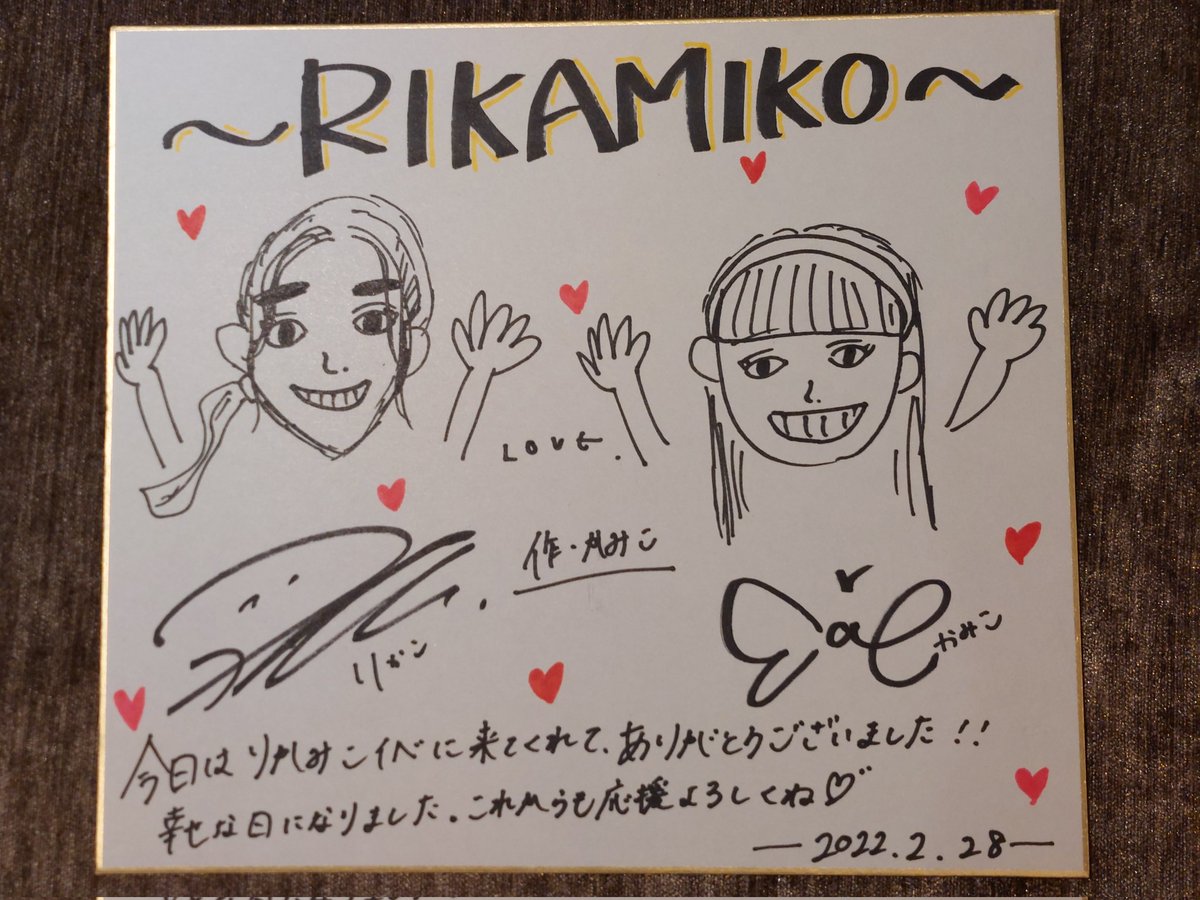 ~RIKAMIKO~
LOVE.
作・かみこ
りかこ
かみこ
今日はりかみこイベに来てくれて、ありがとうございました!!
幸せな日になりました。これからも応援よろしくね♡
—2022.2.28—